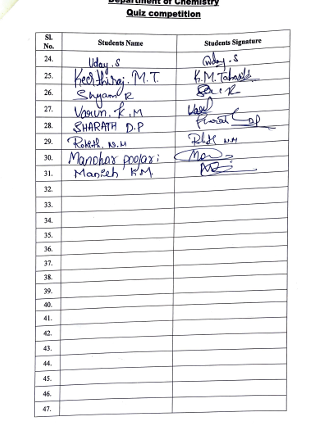 Department of Chemistry
Quiz competition
Sl. No. Students Name Students Signature
24. Uday.S Uday.S
25. Keerthiraj.M.T K.M.
26. Shyam R
27. Varun.K.M
28. SHARATH D.P
29. Rohith.N.M
30. Manohar poojari
31. Manish KM
32.
33.
34.
35.
36.
37.
38.
39.
40.
41.
42.
43.
44.
45.
46.
47.